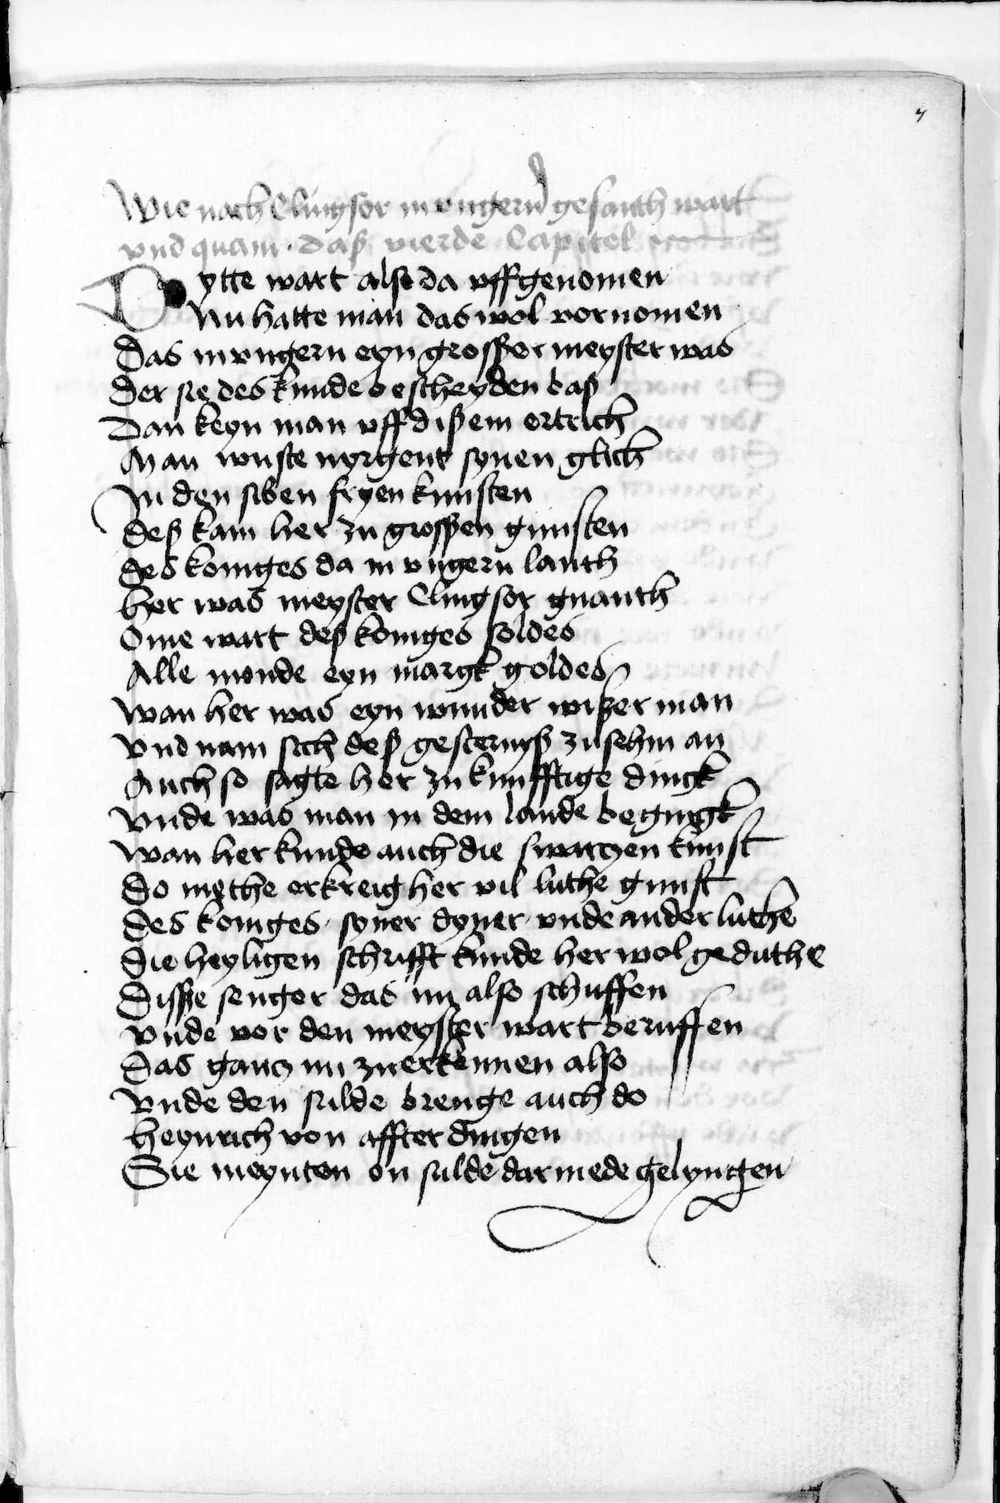 7
Wie nach Clingsor in ungern gesanth wart
vnd quam · daß vierde Capitel
Dytte wart also da uffgenomen
Nu hatte man das wol vornomen
Das in vngern eyn grosßer meyster was
der sie des kunde bescheyden baß
Dan keyn man uff dißem ertrich
Man wuste nyrgent synen glich
In den siben fryen kunsten
deß kam her zu grosßen gunsten
des koniges da in vngern lanth
her was meyster Clingsor gnanth
Ome wart deß koniges soldes
Alle monde eyn margk goldes
wan her was eyn wunder wißer man
vnd nam sich deß gesternß zusehin an
Auch so sagte her zu kunfftige dingk
vnde was man in dem lande begingk
wan her kunde auch die swarczen kunst
do methe erkreig her vil luthe gunst
des koniges · syner dyner · vnde ander luthe
die heyligen schrifft kunde her wol geduthe
Disße senger das nu also schuffen
vnde vor den meyster wart beruffen
das gancz nu zu erkennen also
vnde den sulde brenge auch do
heynrich von affterdingen
Sie meynten on sulde dar mede gelyngen